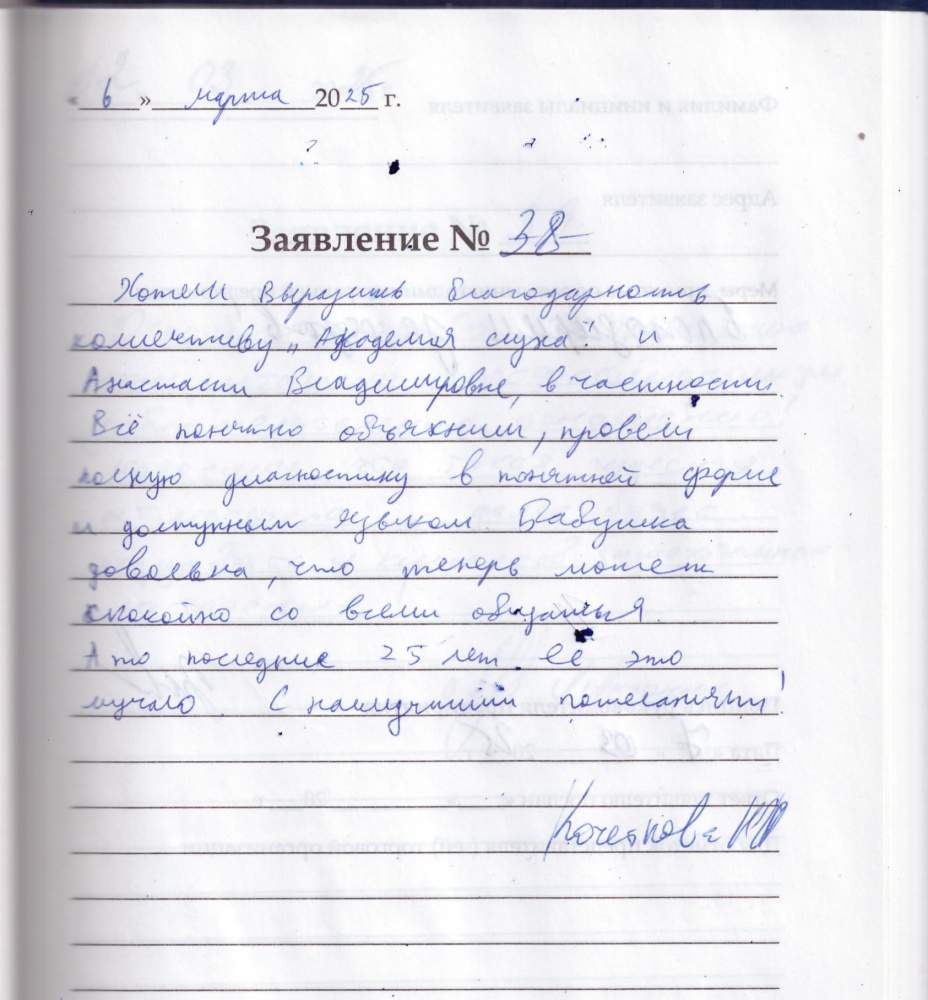 « 6 » марта 2025 г.
Заявление № 38
Хотели выразить благодарность
коллективу „Академия слуха" и
Анастасии Владимировне, в частности.
Всё понятно объяснили, провели
полную диагностику в понятной форме
и доступным языком Бабушка
довольна, что теперь может
спокойно со всеми общаться.
А то последние 25 лет её это
мучало С наилучшими пожеланиями!
Кочеткова